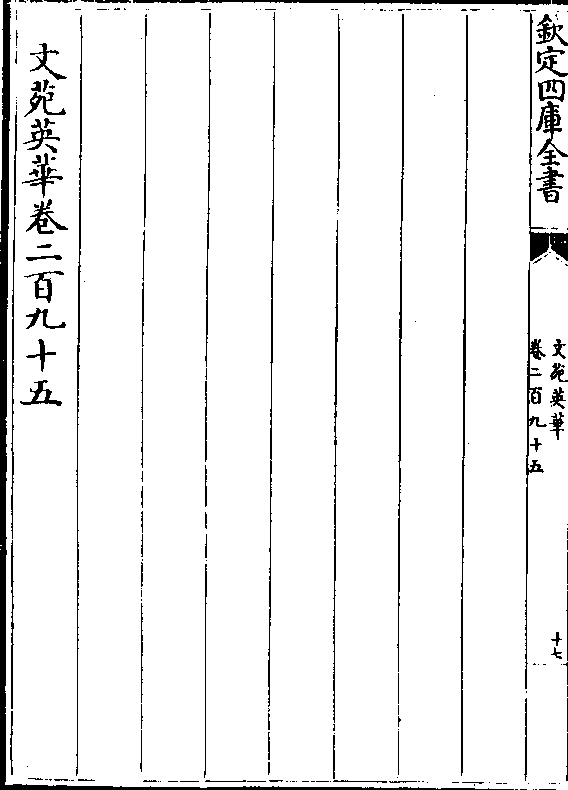 欽定四庫全書
文苑英華
卷二百九十五
十七
文苑英華卷二百九十五